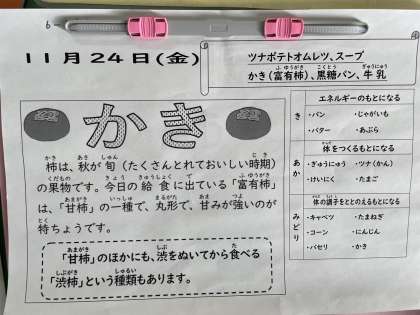 6
11月24日(金)
ツナポテトオムレツ、スープ
かき(富有柿)、黒糖パン、牛乳
かき
柿は、秋が旬(たくさんとれておいしい時期)
の果物です。今日の給食に出ている「富有柿」
は、「甘柿」の一種で、丸形で、甘みが強いのが
特ちょうです。
「甘柿」のほかにも、渋をぬいてから食べる
「渋柿」という種類もあります。
エネルギーのもとになる
き
・パン ・じゃがいも
・バター ・あぶら
体をつくるもとになる
あか
・ぎゅうにゅう ・ツナ(かん)
・けいにく ・たまご
体の調子をととのえるもとになる
みどり
・キャベツ ・たまねぎ
・コーン ・にんじん
・パセリ ・かき